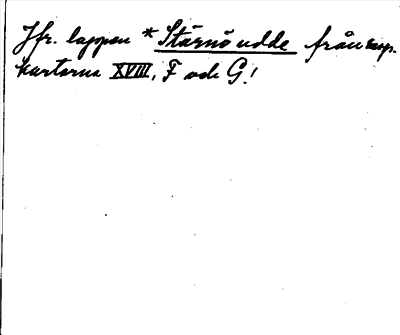 Jfr. lappen *Stärnö udde från exp.
kartorna XVIII, F och G!